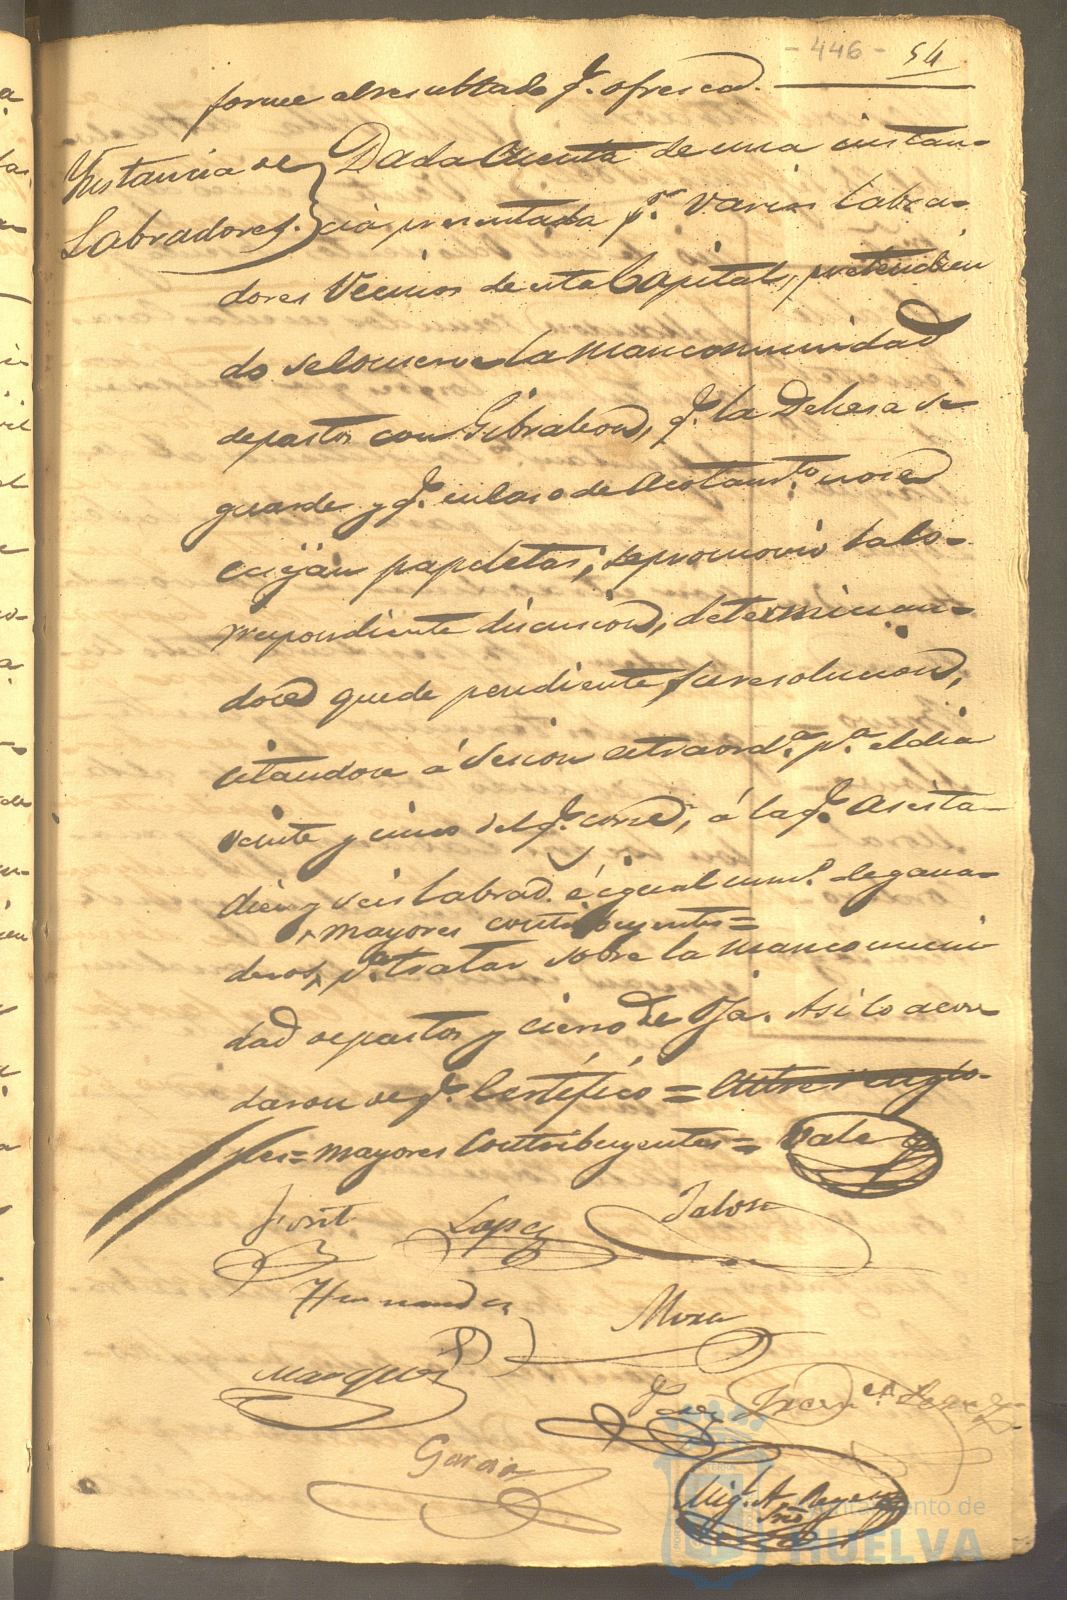 - 446 - 54
forme al resultado q.e ofresca.
Ynstancia de
Labradores.
Dada Cuenta de una instan-
cia presentada p.r varios Labra-
dores Vecinos de esta Capital, pretendien
do se conserve la mancomunidad
de pastos con Gibraleon, q.e la Dehesa se
guarde y q.e en caso de Acotam.to no se
exijan papeletas; se promovió la co-
rrespondiente discusion, determinan-
doce quede pendiente su resolucion,
citandose á Sesion extraord.a p.a el dia
veinte y cinco del q.e corre, á la q.e Asista
diez y seis Labrad. é igual num.o de gana-
mayores contribuyentes=
deros, p.a tratar sobre la mancomuni
dad de pastos y cierro de Oja. Asi lo acor
daron de q.e Certifico = Entre renglo-
nes= mayores Contribuyentes= Vale
Forit Lopez Jalon
Hernandez
Mora
Marquez
José Lopez
Garcia
Mig.l A.
Srio
Ayuntamiento de
HUELVA